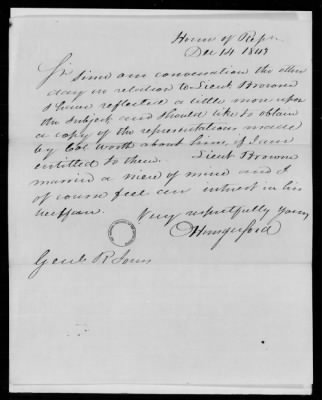 House of Reps
Dec 14 1843
Sir Since our conversation the other
day in relation to Lieut Browne
I have reflected a little more upon
the subject and should like to obtain
a copy of the representations made
by Col Worth about him, if I am
entitled to them. Lieut Browne
married a niece of mine and I
of course feel an interest in his
welfare.
Very respectfully yours
Hungerford
Genl R Jones